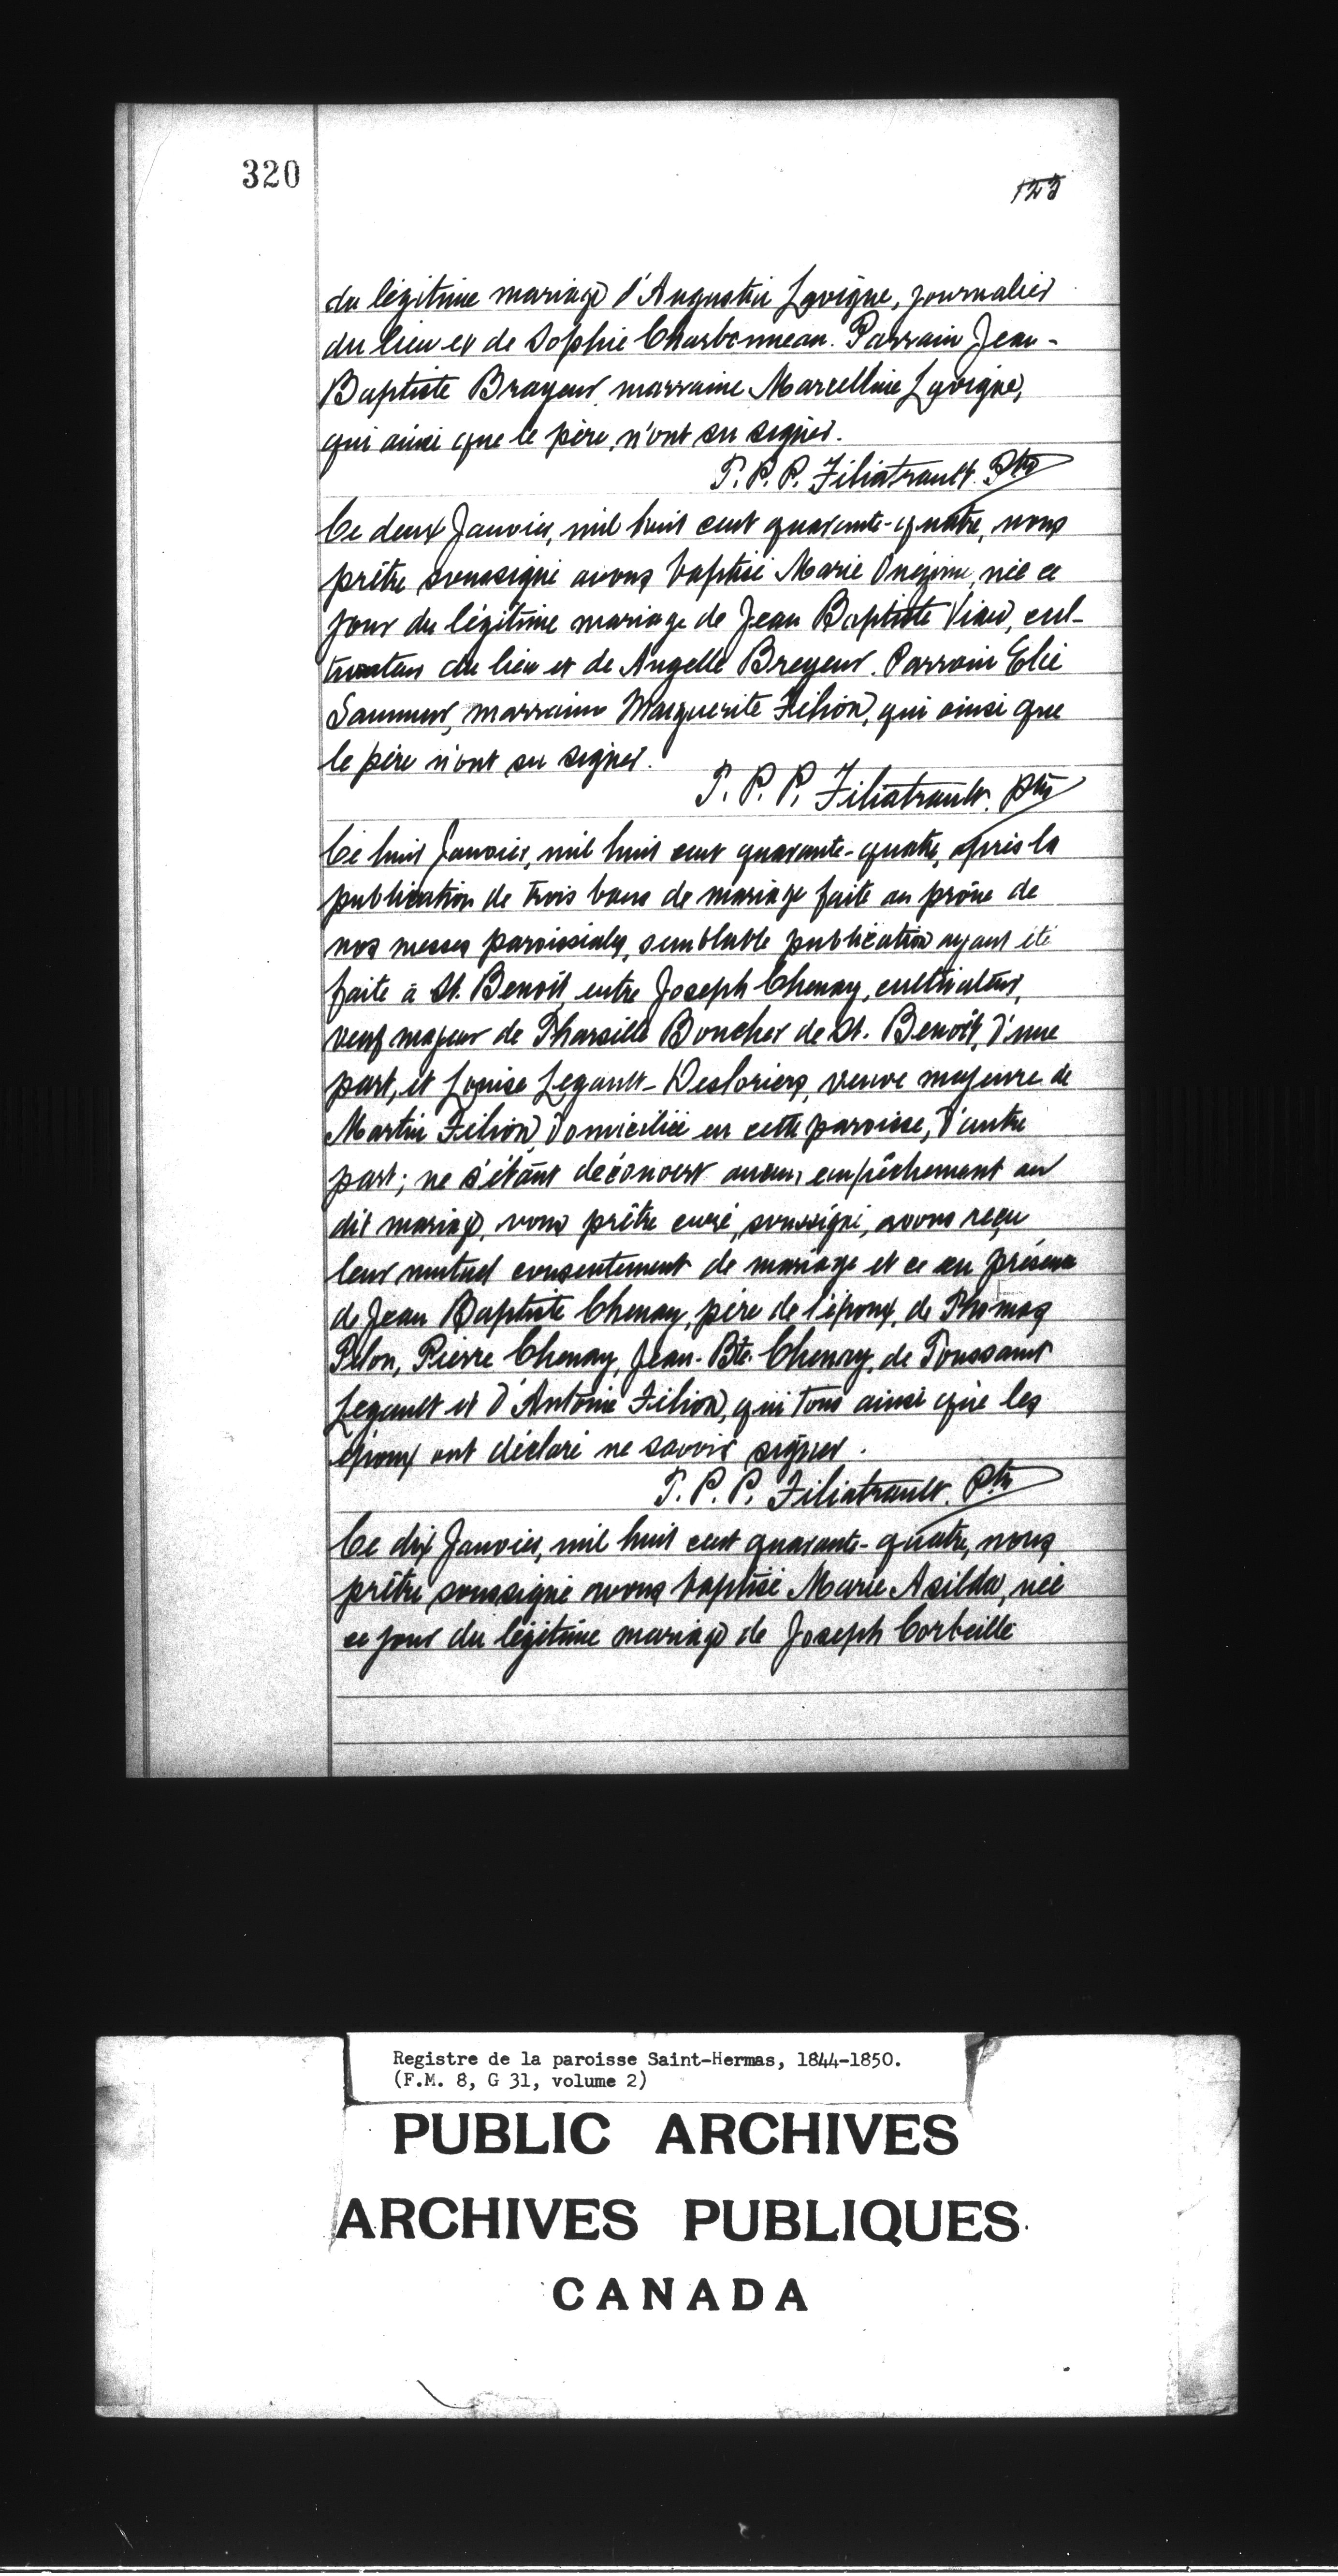 320
123
du légitime mariage d'Augustin Lavigne, journalier
du lieu et de Sophie Charbonneau. Parrain Jean-
Baptiste Brayeur, marraine Marcelline Lavigne,
qui ainsi que le père, n'ont su signer.
T. P. P. Filiatrault. Ptre
Ce deux Janvier, mil huit cent quarante-quatre, nous
prêtre soussigné avons baptisé Marie Onézime, née ce
jour du légitime mariage de Jean Baptiste Viau, cul-
tivateur du lieu et de Angelle Breyeur. Parrain Elie
Saumur, marraine Marguerite Filion, qui ainsi que
le père n'ont su signer.
T. P. P. Filiatrault. Ptre
Ce huit Janvier, mil huit cent quarante-quatre, après la
publication de trois bans de mariage faite au prône de
nos messes paroissiales, semblable publication ayant été
faite à St. Benoit, entre Joseph Chenay, cultivateur,
veuf majeur de Tharsille Boucher de St. Benoît, d'une
part, et Louise Legault-Desloriers, veuve majeure de
Martin Filion, domiciliée en cette paroisse, d'autre
part; ne s'étant découvert aucun empêchement au
dit mariage, nous prêtre curé, soussigné, avons reçu
leur mutuel consentement de mariage et ce en présence
de Jean Baptiste Chenay, père de l'époux, de Thomas
Pilon, Pierre Chenay, Jean-Bte. Chenay, de Toussaint
Legault et d'Antoine Filion, qui tous ainsi que les
époux ont déclaré ne savoir signer.
T. P. P. Filiatrault. Ptre
Ce dix Janvier, mil huit cent quarante-quatre, nous
prêtre soussigné avons baptisé Marie Asilda, née
ce jour du légitime mariage de Joseph Corbeille
Registre de la paroisse Saint-Hermas, 1844-1850.
(F.M. 8, G 31, volume 2)
PUBLIC ARCHIVES
ARCHIVES PUBLIQUES
CANADA